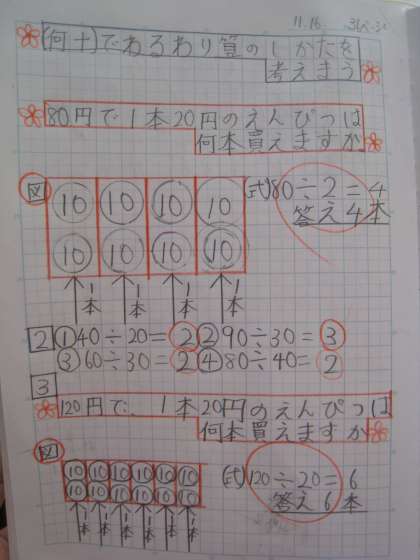 11.16.
(何十)でわるわり算のしかたを
考えよう
80円で1本20円のえんぴつは
何本買えますか
図
10 10 10 10
10 10 10 10
1本 1本 1本 1本
(式)80÷2=4
答え4本
2 ①40÷20=2 ②90÷30=3
③60÷30=2 ④80÷40=2
3
120円で、1本20円のえんぴつは
何本買えますか
図
10 10 10 10 10 10
10 10 10 10 10 10
1本 1本 1本 1本 1本 1本
(式)120÷20=6
答え6本